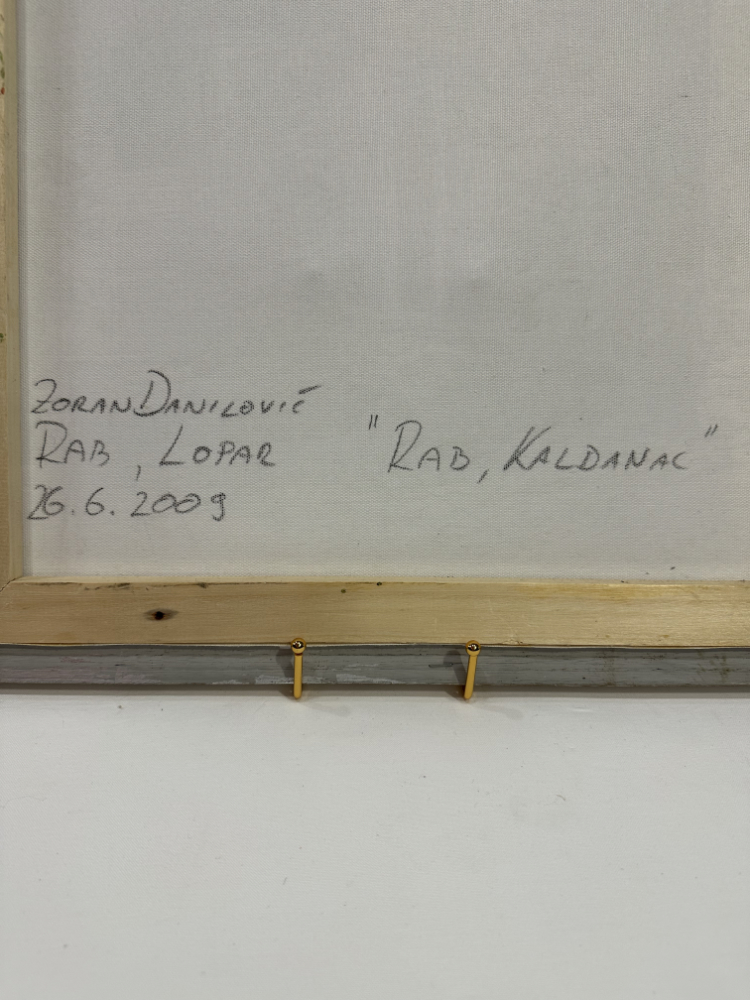 ZORAN DANILOVIĆ
RAB, LOPAR
26.6.2009
"RAB, KALDANAC"